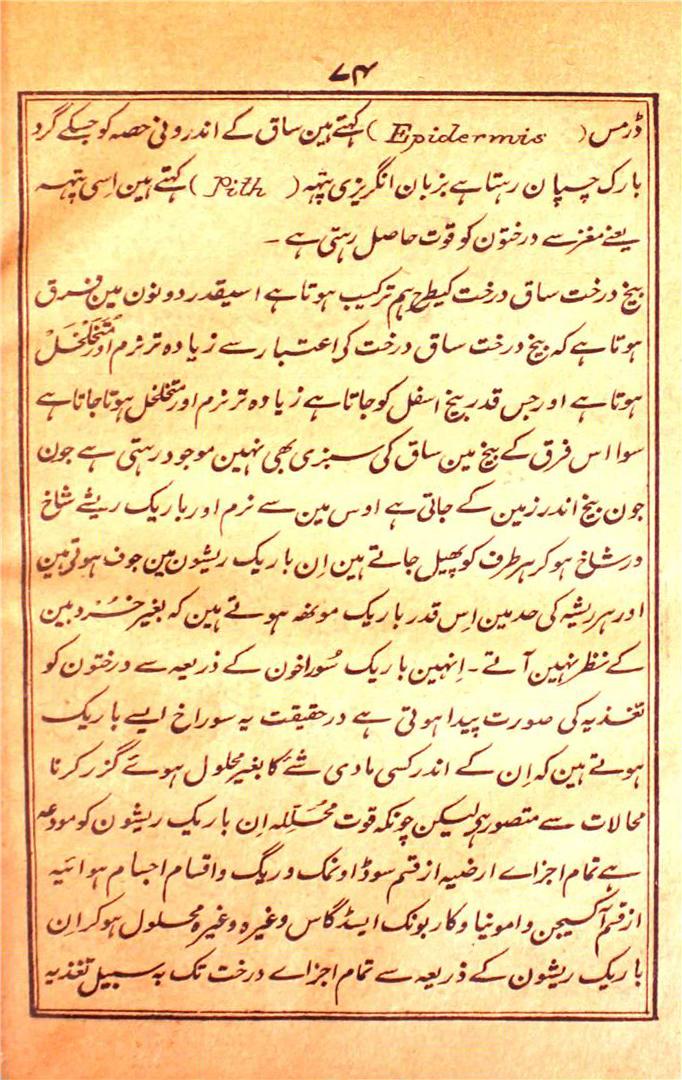 ۷۴
ڈرمس (Epidermis) کہتے ہین ساق کے اندرونی حصہ کو جسکے گرد
بارک چسپان رہتا ہے بزبان انگریزی پتہہ (Pith) کہتے ہین اِسی پتہہ
یعنے مغز سے درختون کو قوت حاصل رہتی ہے ۔
بیخ درخت ساق درخت کیطرح ہم ترکیب ہوتا ہے اسیقدر دونون مین فرق
ہوتا ہے کہ بیخ درخت ساق درخت کی اعتبار سے زیادہ تر نرم اور متخلخل
ہوتا ہے اور جس قدر بیخ اسفل کو جاتا ہے زیادہ تر نرم اور متخلخل ہوتا جاتا ہے
سوا اس فرق کے بیخ مین ساق کی سبزی بھی نہین موجود رہتی ہے جون
جون بیخ اندر زمین کے جاتی ہے اوس مین سے نرم اور باریک ریشے شاخ
در شاخ ہو کر ہر طرف کو پھیل جاتے ہین اِن باریک ریشون مین جوف ہوتی ہین
اور ہر ریشہ کی حد مین اِس قدر باریک مونھہ ہوتے ہین کہ بغیر خُردبین
کے نظر نہین آتے ۔ اِنہین باریک سُوراخون کے ذریعہ سے درختون کو
تغذیہ کی صورت پیدا ہوتی ہے درحقیقت یہ سوراخ ایسے باریک
ہوتے ہین کہ اِن کے اندر کسی مادی شئے کا بغیر محلول ہوئے گزر کرنا
محالات سے متصور ہے لیکن چونکہ قوت محللہ اِن باریک ریشون کو مودعہ
ہے تمام اجزاے ارضیہ از قسم سوڈا و نمک و ریگ و اقسام اجسام ہوائیہ
از قسم آکسیجن و امونیا و کاربونک ایسڈ گاس وغیرہ وغیرہ محلول ہو کر اِن
باریک ریشون کے ذریعہ سے تمام اجزاے درخت تک بہ سبیل تغذیہ